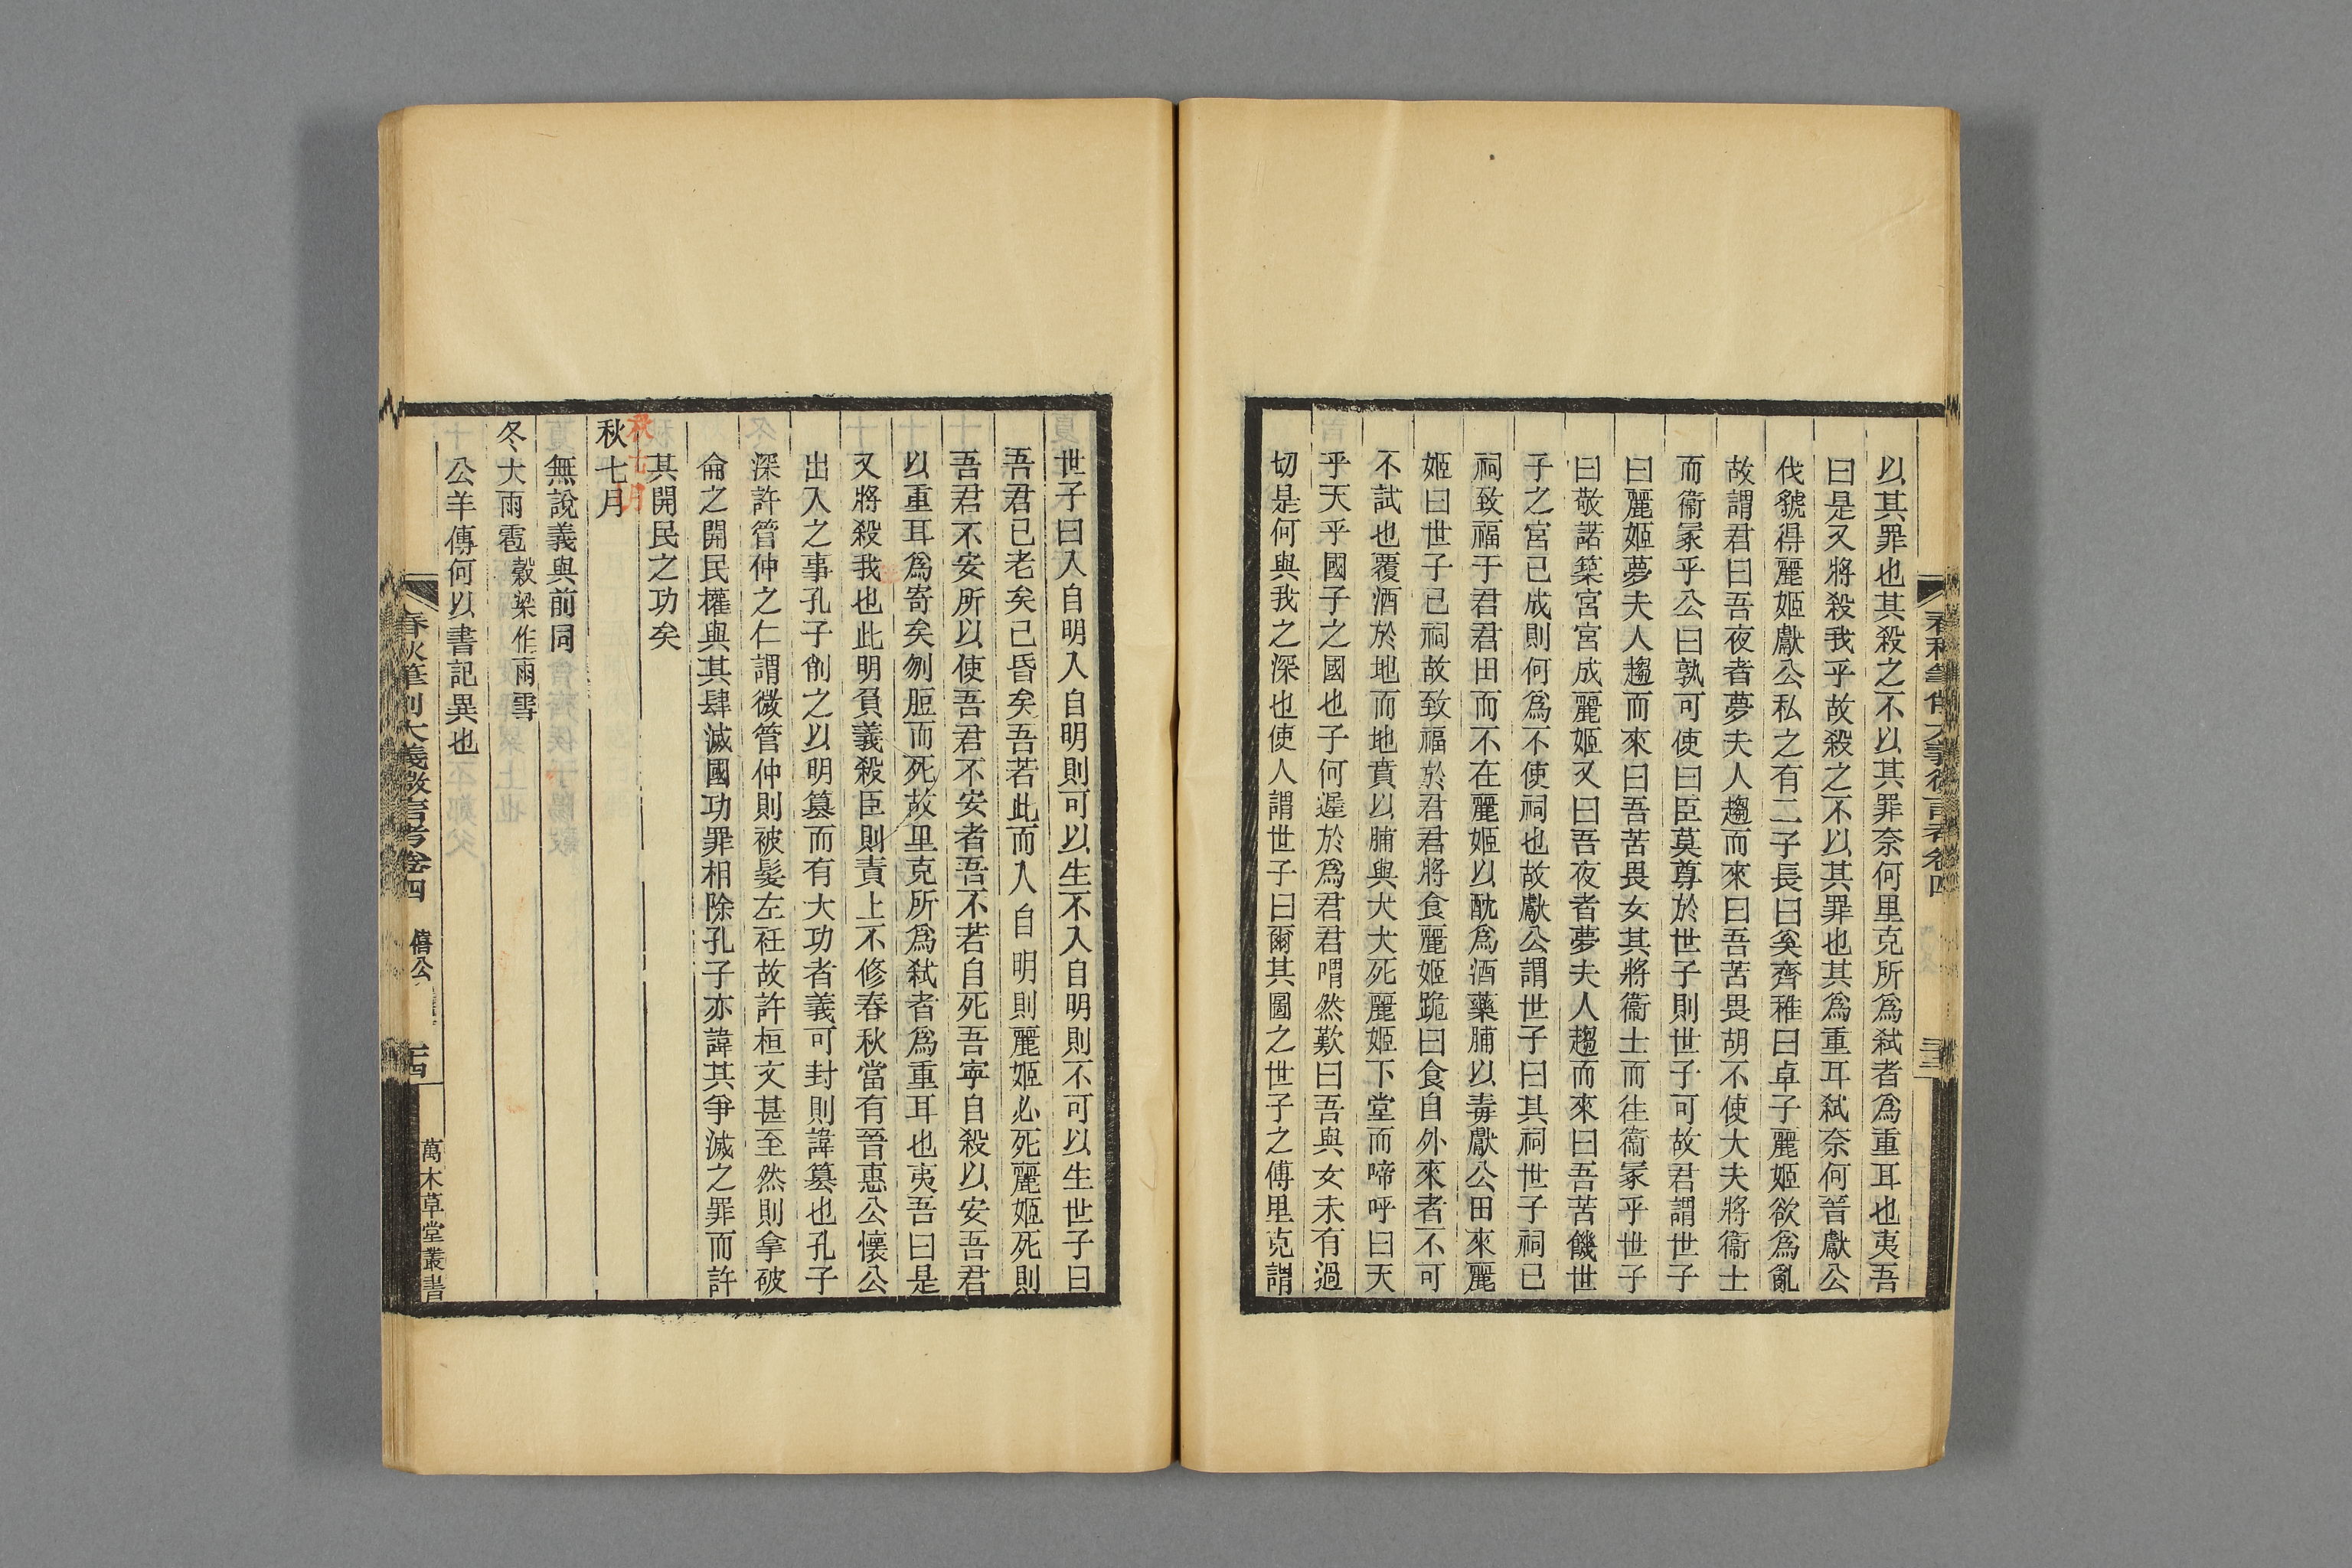 以其罪也其殺之不以其罪奈何里克所爲弒者爲重耳也夷吾
曰是又將殺我乎故殺之不以其罪也其爲重耳弒奈何晉獻公
伐虢得麗姬獻公私之有二子長曰奚齊稚曰卓子麗姬欲爲亂
故謂君曰吾夜者夢夫人趨而來曰吾苦畏胡不使大夫將衞士
而衞冢乎公曰孰可使曰臣莫尊於世子則世子可故君謂世子
曰麗姬夢夫人趨而來曰吾苦畏女其將衞士而往衞冢乎世子
曰敬諾築宮宮成麗姬又曰吾夜者夢夫人趨而來曰吾苦饑世
子之宮已成則何爲不使祠也故獻公謂世子曰其祠世子祠已
祠致福于君君田而不在麗姬以酖爲酒藥脯以毒獻公田來麗
姬曰世子已祠故致福於君君將食麗姬跪曰食自外來者不可
不試也覆酒於地而地賁以脯與犬犬死麗姬下堂而啼呼曰天
乎天乎國子之國也子何遲於爲君君喟然歎曰吾與女未有過
切是何與我之深也使人謂世子曰爾其圖之世子之傅里克謂
春秋筆削大義微言考卷四
世子曰入自明入自明則可以生不入自明則不可以生世子曰
吾君已老矣已昏矣吾若此而入自明則麗姬必死麗姬死則
吾君不安所以使吾君不安者吾不若自死吾寧自殺以安吾君
以重耳爲寄矣刎脰而死故里克所爲弒者爲重耳也夷吾曰是
又將殺我也此明負義殺臣則責上不修春秋當有晉惠公懷公
出入之事孔子削之以明簒而有大功者義可封則諱簒也孔子
深許管仲之仁謂微管仲則被髮左衽故許桓文甚至然則拿破
侖之開民權與其肆滅國功罪相除孔子亦諱其爭滅之罪而許
其開民之功矣
秋七月
秋七月
無說義與前同
冬大雨雹穀梁作雨雪
公羊傳何以書記異也
春秋筆削大義微言考卷四
僖公
萬木草堂叢書